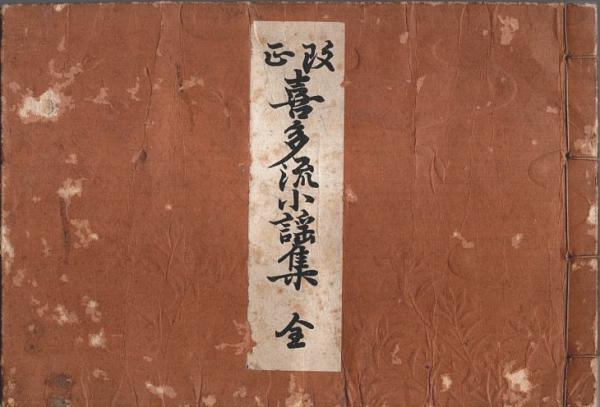 改正
喜多流小謡集 全